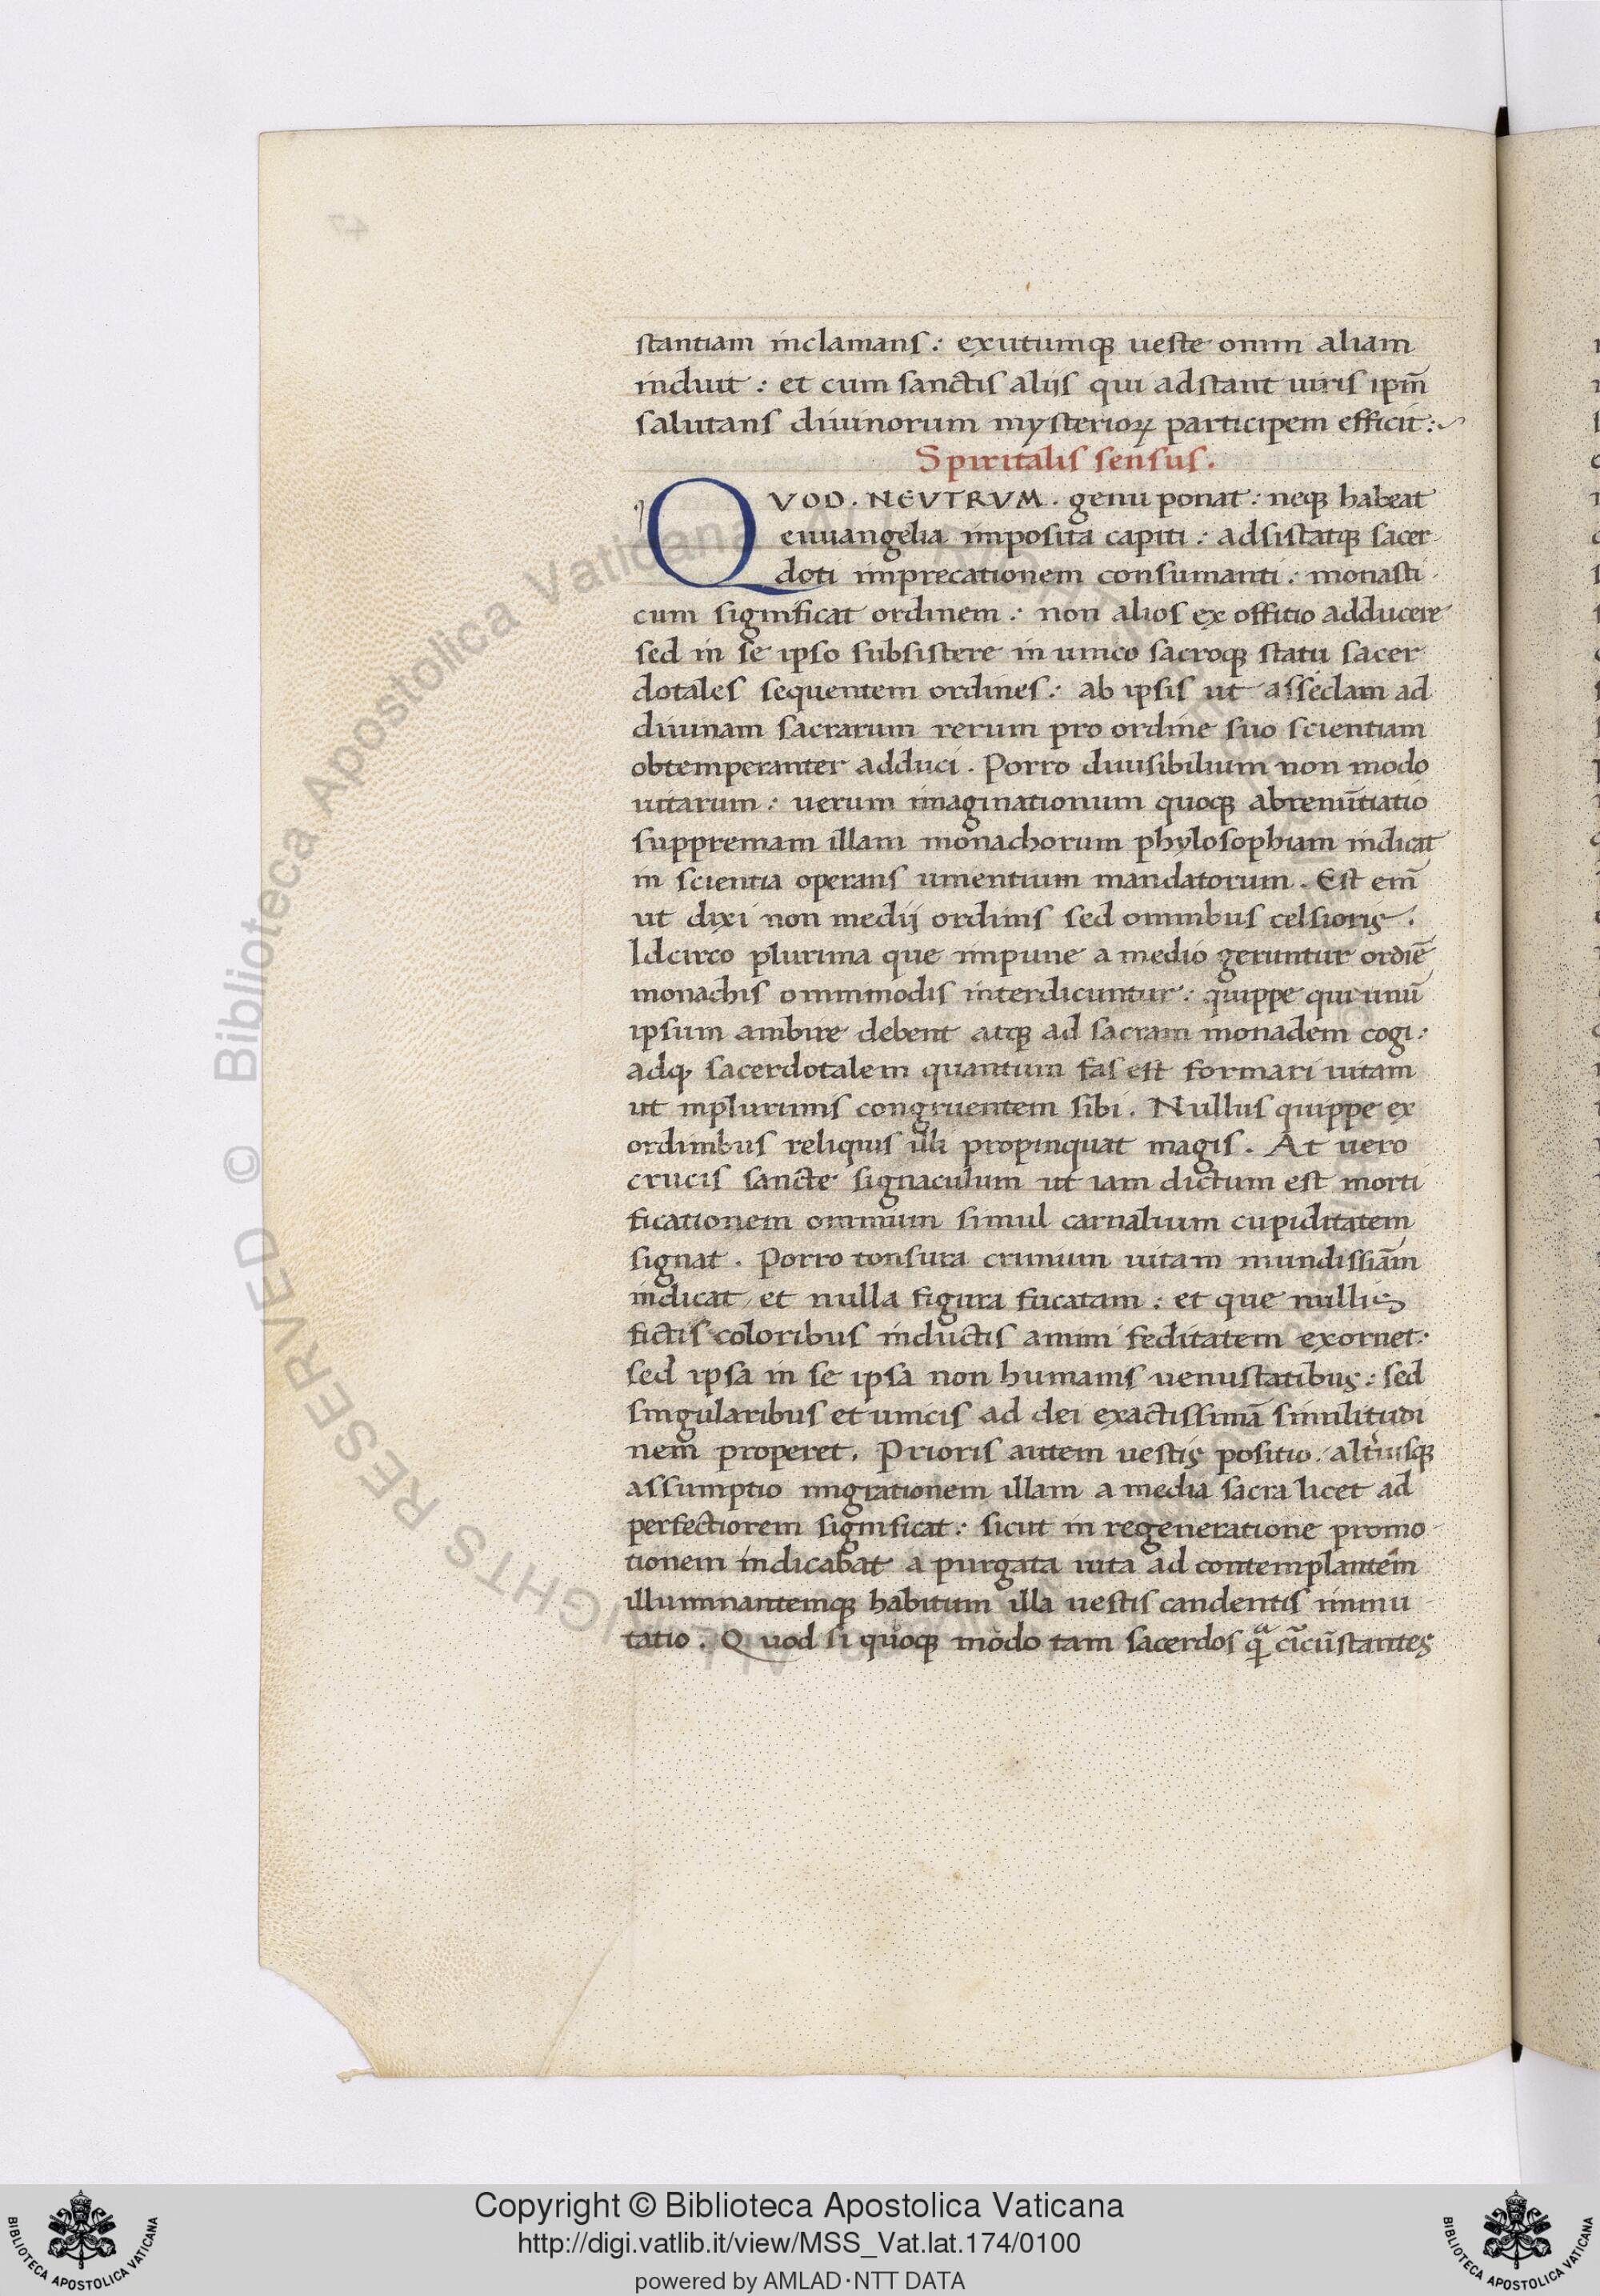 stantiam inclamans: exutumq; ueste omni aliam
induit: et cum sanctis aliis qui adstant uiris ipm̄
salutans diuinorum mysterioꝝ participem efficit:
Spiritalis sensus.
QVOD. NEVTRVM. genu ponat: neq; habeat
euuangelia imposita capiti: adsistatq; sacer-
doti imprecationem consumanti: monasti-
cum significat ordinem: non alios ex offitio adducere
sed in se ipso subsistere in unico sacroq; statu sacer
dotales sequentem ordines: ab ipsis ut asseclam ad
diuinam sacrarum rerum pro ordine suo scientiam
obtemperanter adduci. Porro diuisibilium non modo
uitarum: uerum imaginationum quoq; abrenūtiatio
suppremam illam monachorum phylosophiam indicat
in scientia operans umentium mandatorum. Est em̄
ut dixi non medij ordinis sed omnibus celsioris.
Idcirco plurima que impune a medio geruntur ordiē
monachis omnimodis interdicuntur: quippe qui unū
ipsum ambire debent atq; ad sacram monadem cogi:
adq; sacerdotalem quantum fas est formari uitam
ut inplurimis congruentem sibi. Nullus quippe ex
ordinibus reliquis illi propinquat magis. At uero
crucis sancte signaculum ut iam dictum est morti
ficationem omnium simul carnalium cupiditatem
signat. Porro tonsura crinium uitam mundissiām
indicat et nulla figura fucatam: et que nullis
fictis coloribus inductis animi feditatem exornet:
sed ipsa in se ipsa non humanis uenustatibus: sed
singularibus et unicis ad dei exactissimā similitudi
nem properet. Prioris autem uestis positio. altiusq;
assumptio migrationem illam a media sacra licet ad
perfectiorem significat: sicut in regeneratione promo-
tionem indicabat a purgata uita ad contemplantem
illuminantemq; habitum illa uestis candentis immu-
tatio. Quod si quoq; modo tam sacerdos q̄ cīcūstantes
© Biblioteca Apostolica Vaticana
ALL RIGHTS RESERVED
Copyright © Biblioteca Apostolica Vaticana
http://digi.vatlib.it/view/MSS_Vat.lat.174/0100
powered by AMLAD·NTT DATA
BIBLIOTECA APOSTOLICA VATICANA
BIBLIOTECA APOSTOLICA VATICANA